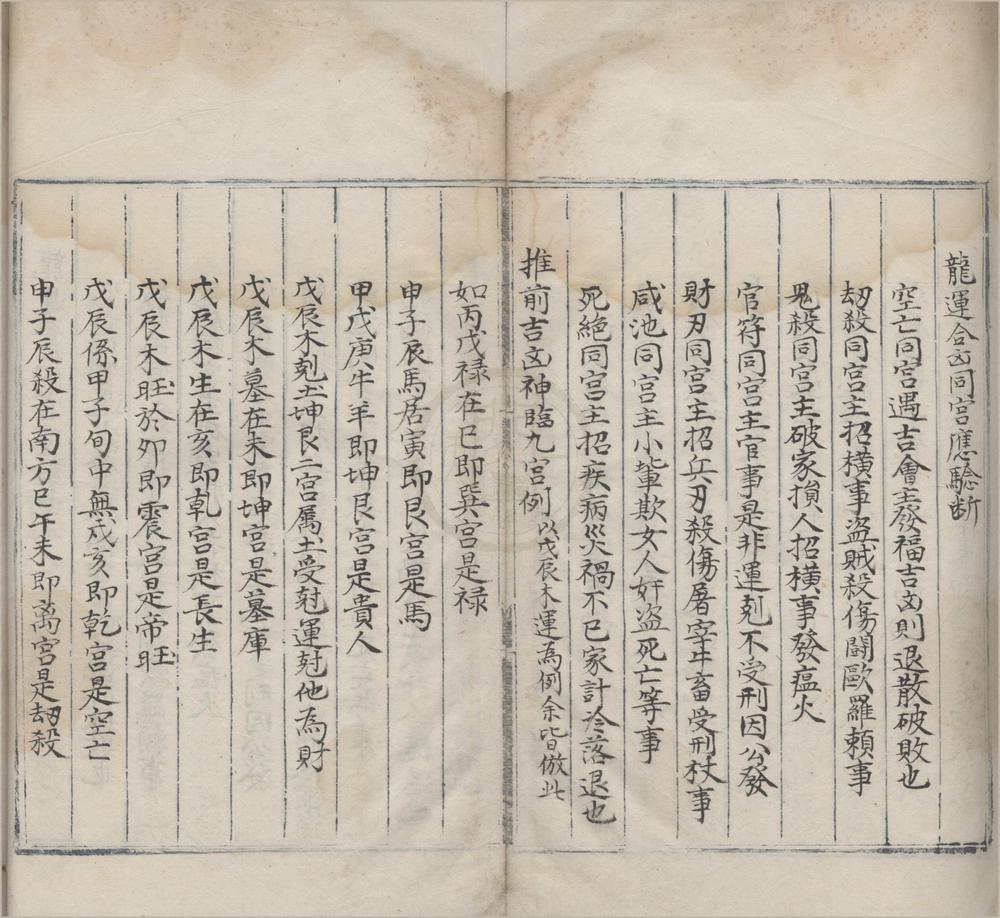 龍運合凶同宮應驗断
空亡同宮遇吉會主發福吉凶則退散破敗也
刼殺同宮主招橫事盜賊殺傷鬪歐羅賴事
鬼殺同宮主破家損人招橫事發瘟火
官符同宮主官事是非運剋不受刑因公發
財刃同宮主招兵刃殺傷屠宰牛畜受刑杖事
咸池同宮主小輩欺女人奸盗死亡等事
死絕同宮主招疾病災禍不已家計冷落退也
推前吉凶神臨九宮例以戊辰木運為例余皆倣此
如丙戊禄在巳即巽宮是禄
申子辰馬居寅即艮宮是馬
甲戊庚牛羊即坤艮宮是貴人
戊辰木剋土坤艮二宮属土受尅運尅他為財
戊辰木墓在未即坤宮是墓庫
戊辰木生在亥即乾宮是長生
戊辰木旺於夘即震宮是帝旺
戊辰係甲子旬中無戌亥即乾宮是空亡
申子辰殺在南方巳午未即离宮是刼殺